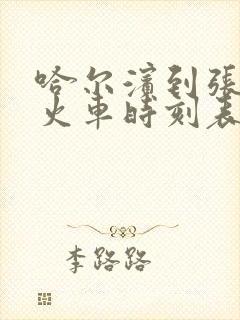 哈尔滨到張
火車時刻表
李路路